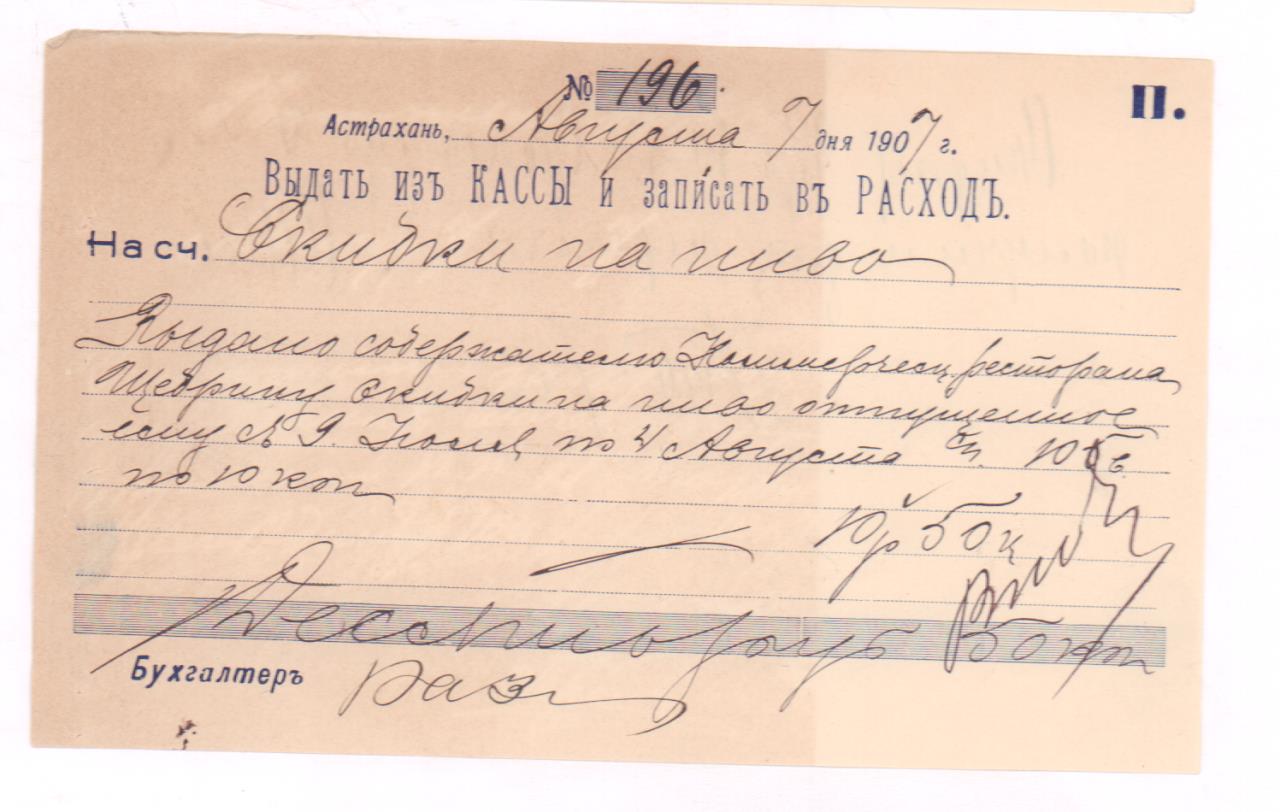 № 196.
П.
Астрахань, Августа 7 дня 1907 г.
Выдать изъ КАССЫ и записать въ РАСХОДЪ.
На сч. Скидки на пиво
Выдано содержателю Коммерческ. ресторана
Щедрину скидки на пиво отпущенное
ему съ 9. Июля по 4 Августа
по 10 коп
10 р 50 к
Десять руб 50 коп
Бухгалтеръ